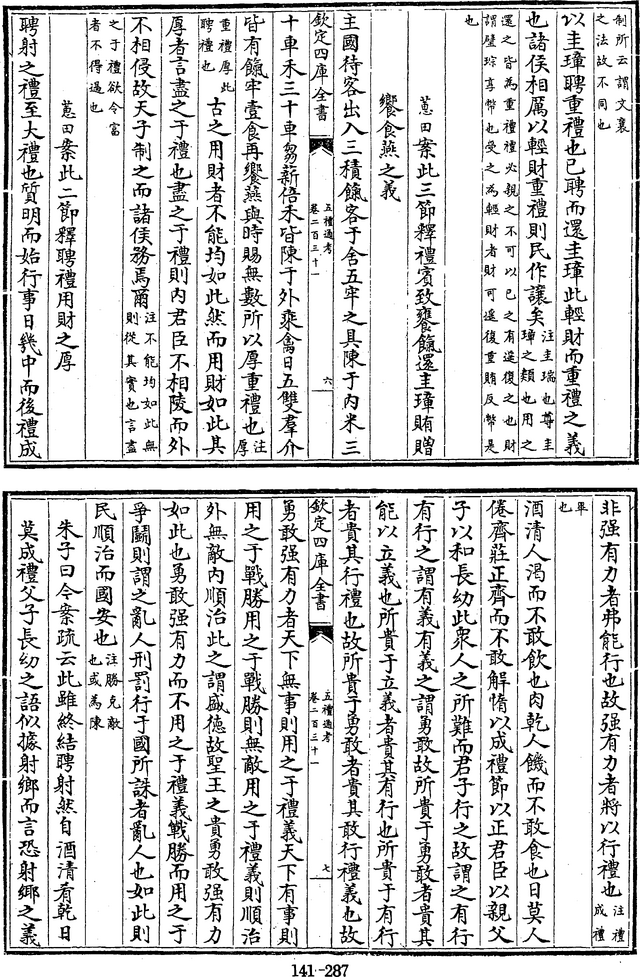 制所云謂文襄
之法故不同也
以圭璋聘重禮也已聘而還圭璋此輕財而重禮之義
也諸侯相厲以輕財重禮則民作讓矣注圭瑞也尊圭
璋之類也用之
還之皆為重禮禮必親之不可以已之有遥復之也財
謂璧琮享幣也受之為輕財者財可遥復重賄反幣是
也
蕙田案此三節釋禮賓致饔餼還圭璋賄贈
饗食燕之義
主國待客出入三積餼客于舍五牢之具陳于內米三
欽定四庫全書
五禮通考
卷二百三十一
六
十車禾三十車芻薪倍禾皆陳于外乘禽日五雙羣介
皆有餼牢壹食再饗燕與時賜無數所以厚重禮也注
厚
重禮厚此
聘禮也
古之用財者不能均如此然而用財如此其
厚者言盡之于禮也盡之于禮則內君臣不相陵而外
不相侵故天子制之而諸侯務焉爾注不能均如此無
則從其實也言盡
之于禮欲令富
者不得過也
蕙田案此二節釋聘禮用財之厚
聘射之禮至大禮也質明而始行事日幾中而後禮成
非强有力者弗能行也故强有力者將以行禮也注禮
成禮
畢
也
酒清人渴而不敢飲也肉乾人饑而不敢食也日莫人
倦齊莊正齊而不敢解惰以成禮節以正君臣以親父
子以和長幼此衆人之所難而君子行之故謂之有行
有行之謂有義有義之謂勇敢故所貴于勇敢者貴其
能以立義也所貴于立義者貴其有行也所貴于有行
者貴其行禮也故所貴于勇敢者貴其敢行禮義也故
欽定四庫全書
五禮通考
卷二百三十一
七
勇敢强有力者天下無事則用之于禮義天下有事則
用之于戰勝用之于戰勝則無敵用之于禮義則順治
外無敵內順治此之謂盛德故聖王之貴勇敢强有力
如此也勇敢强有力而不用之于禮義戰勝而用之于
爭鬬則謂之亂人刑罰行于國所誅者亂人也如此則
民順治而國安也注勝克敵
也或為陳
朱子曰今案疏云此雖終結聘射然自酒清肴乾日
莫成禮父子長幼之語似據射鄉而言恐射鄉之義
141-287